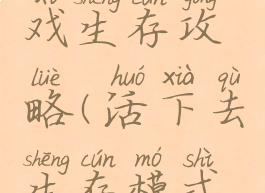 xì shēng cún gōng
戏生存攻
lüè huó xià qù
略(活下去
shēng cún mó shì
生存模式